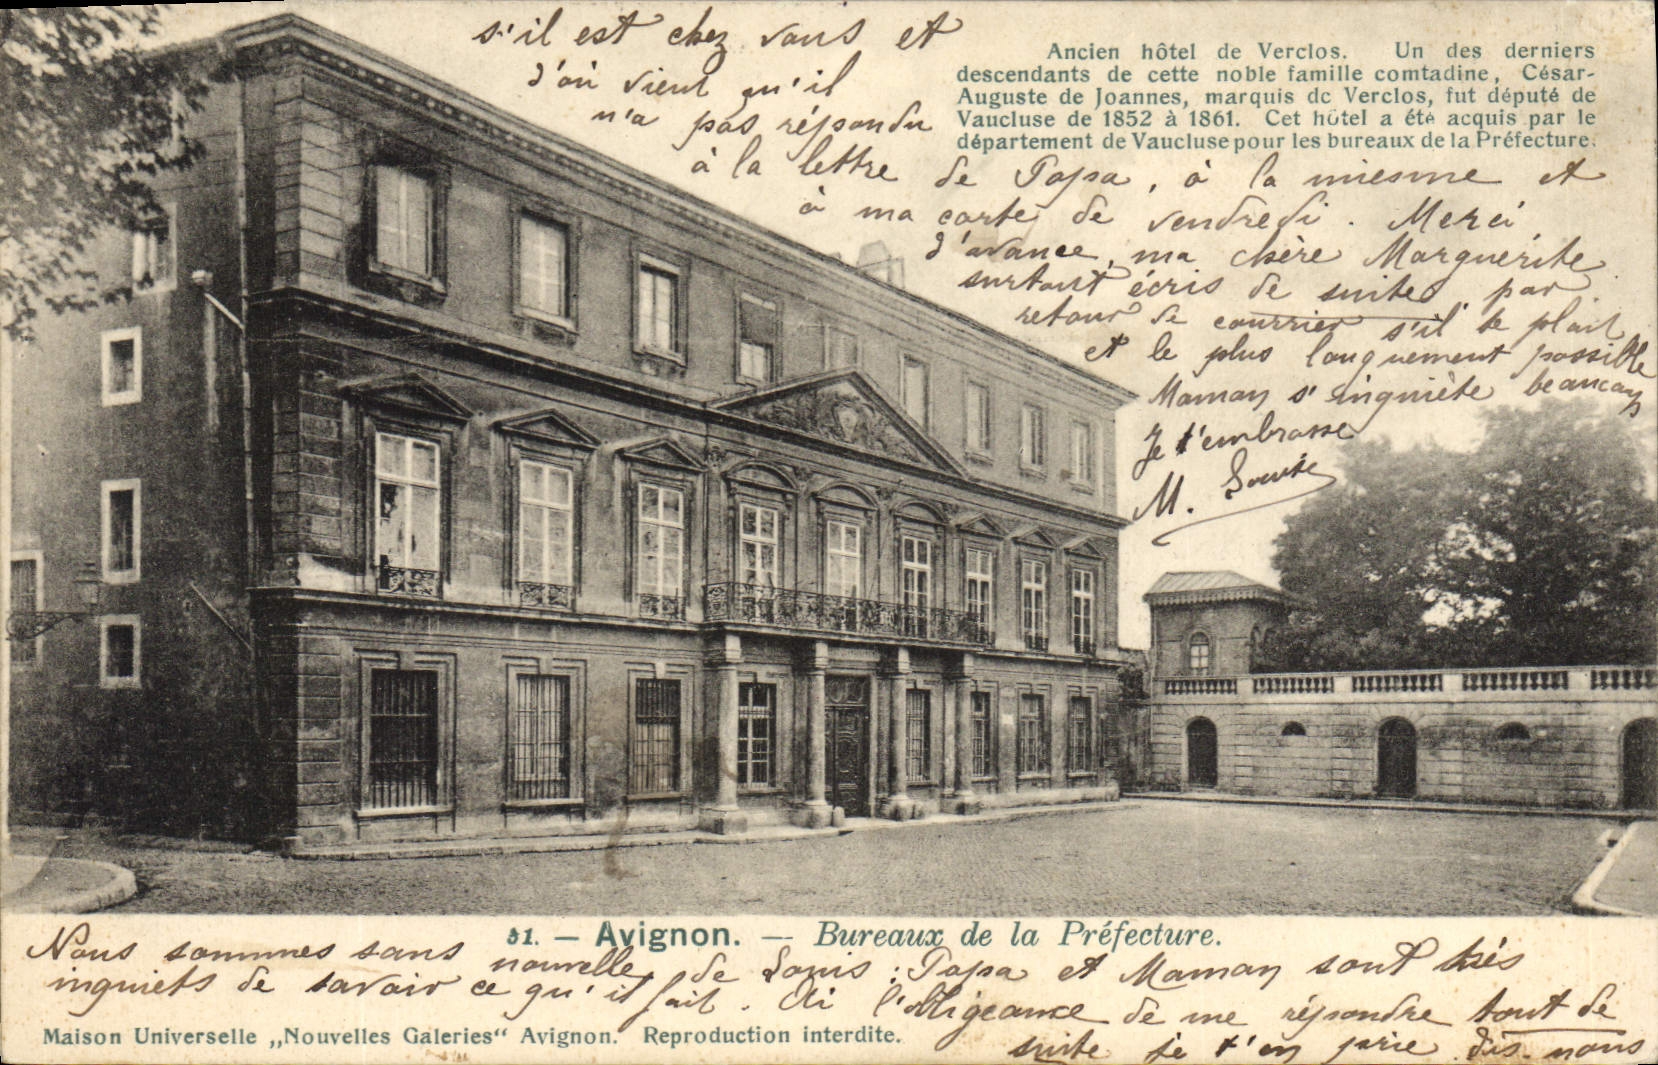 s'il est chez vous et
d'où vient qu'il
n'a pas répondu
à la lettre de Papa, à la mienne et
à ma carte de vendredi. Merci
d'avance, ma chère Marguerite
surtout écris de suite, par
retour de courrier s'il te plait
et le plus longuement possible
Maman s'inquiète beaucoup
Je t'embrasse
M. Louise
Ancien hôtel de Verclos. Un des derniers
descendants de cette noble famille comtadine, César-
Auguste de Joannes, marquis de Verclos, fut député de
Vaucluse de 1852 à 1861. Cet hôtel a été acquis par le
département de Vaucluse pour les bureaux de la Préfecture.
51. — Avignon. — Bureaux de la Préfecture.
Nous sommes sans nouvelle de Louis : Papa et Maman sont très
inquiets de savoir ce qu'il fait. Ai l'obligeance de me répondre tout de
suite je t'en prie. Dis-nous
Maison Universelle „Nouvelles Galeries“ Avignon. Reproduction interdite.